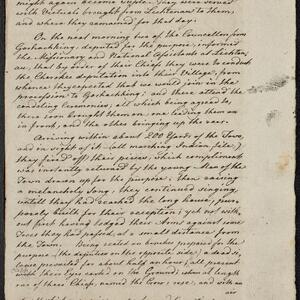 might again become supple. They were served
with Victuals brought from Lichtenau to them,
and where they remained for that day:
On the next morning two of the Councellors from
Goshachking, deputed for the purpose, informed
the Missionary and National Assistants at Lichtenau,
that by order of their Chiefs they were to conduct
the Cherokee deputation into their Village, from
whence they expected that they would join in the
procession to Goshachking; and there attend the
condoling Ceremonies; all which being agreed to,
there soon brought them on one leading them on
in front, and the other bringing up the rear.
Arriving within about 200 Yards of the Town,
and in sight of it (all marching Indian file)
they fired off their pieces, which compliment
was instantly returned by the young Men of the
Town drawn up for the purpose. Then raising
a melancholy song, they continued singing,
untill they had reached the long house, pur-
posely built for their reception; yet not with-
out first having lodged their Arms against some
Trees they had passed, at a small distance from
the Town. Being seated on benches prepared for the
purpose (the deputies on the opposite side) a dead si-
lence prevailed for about half an hour; all present
with their Eyes cast on the Ground; when at length
one of their Chiefs, named the Crow; rose, and with an
air